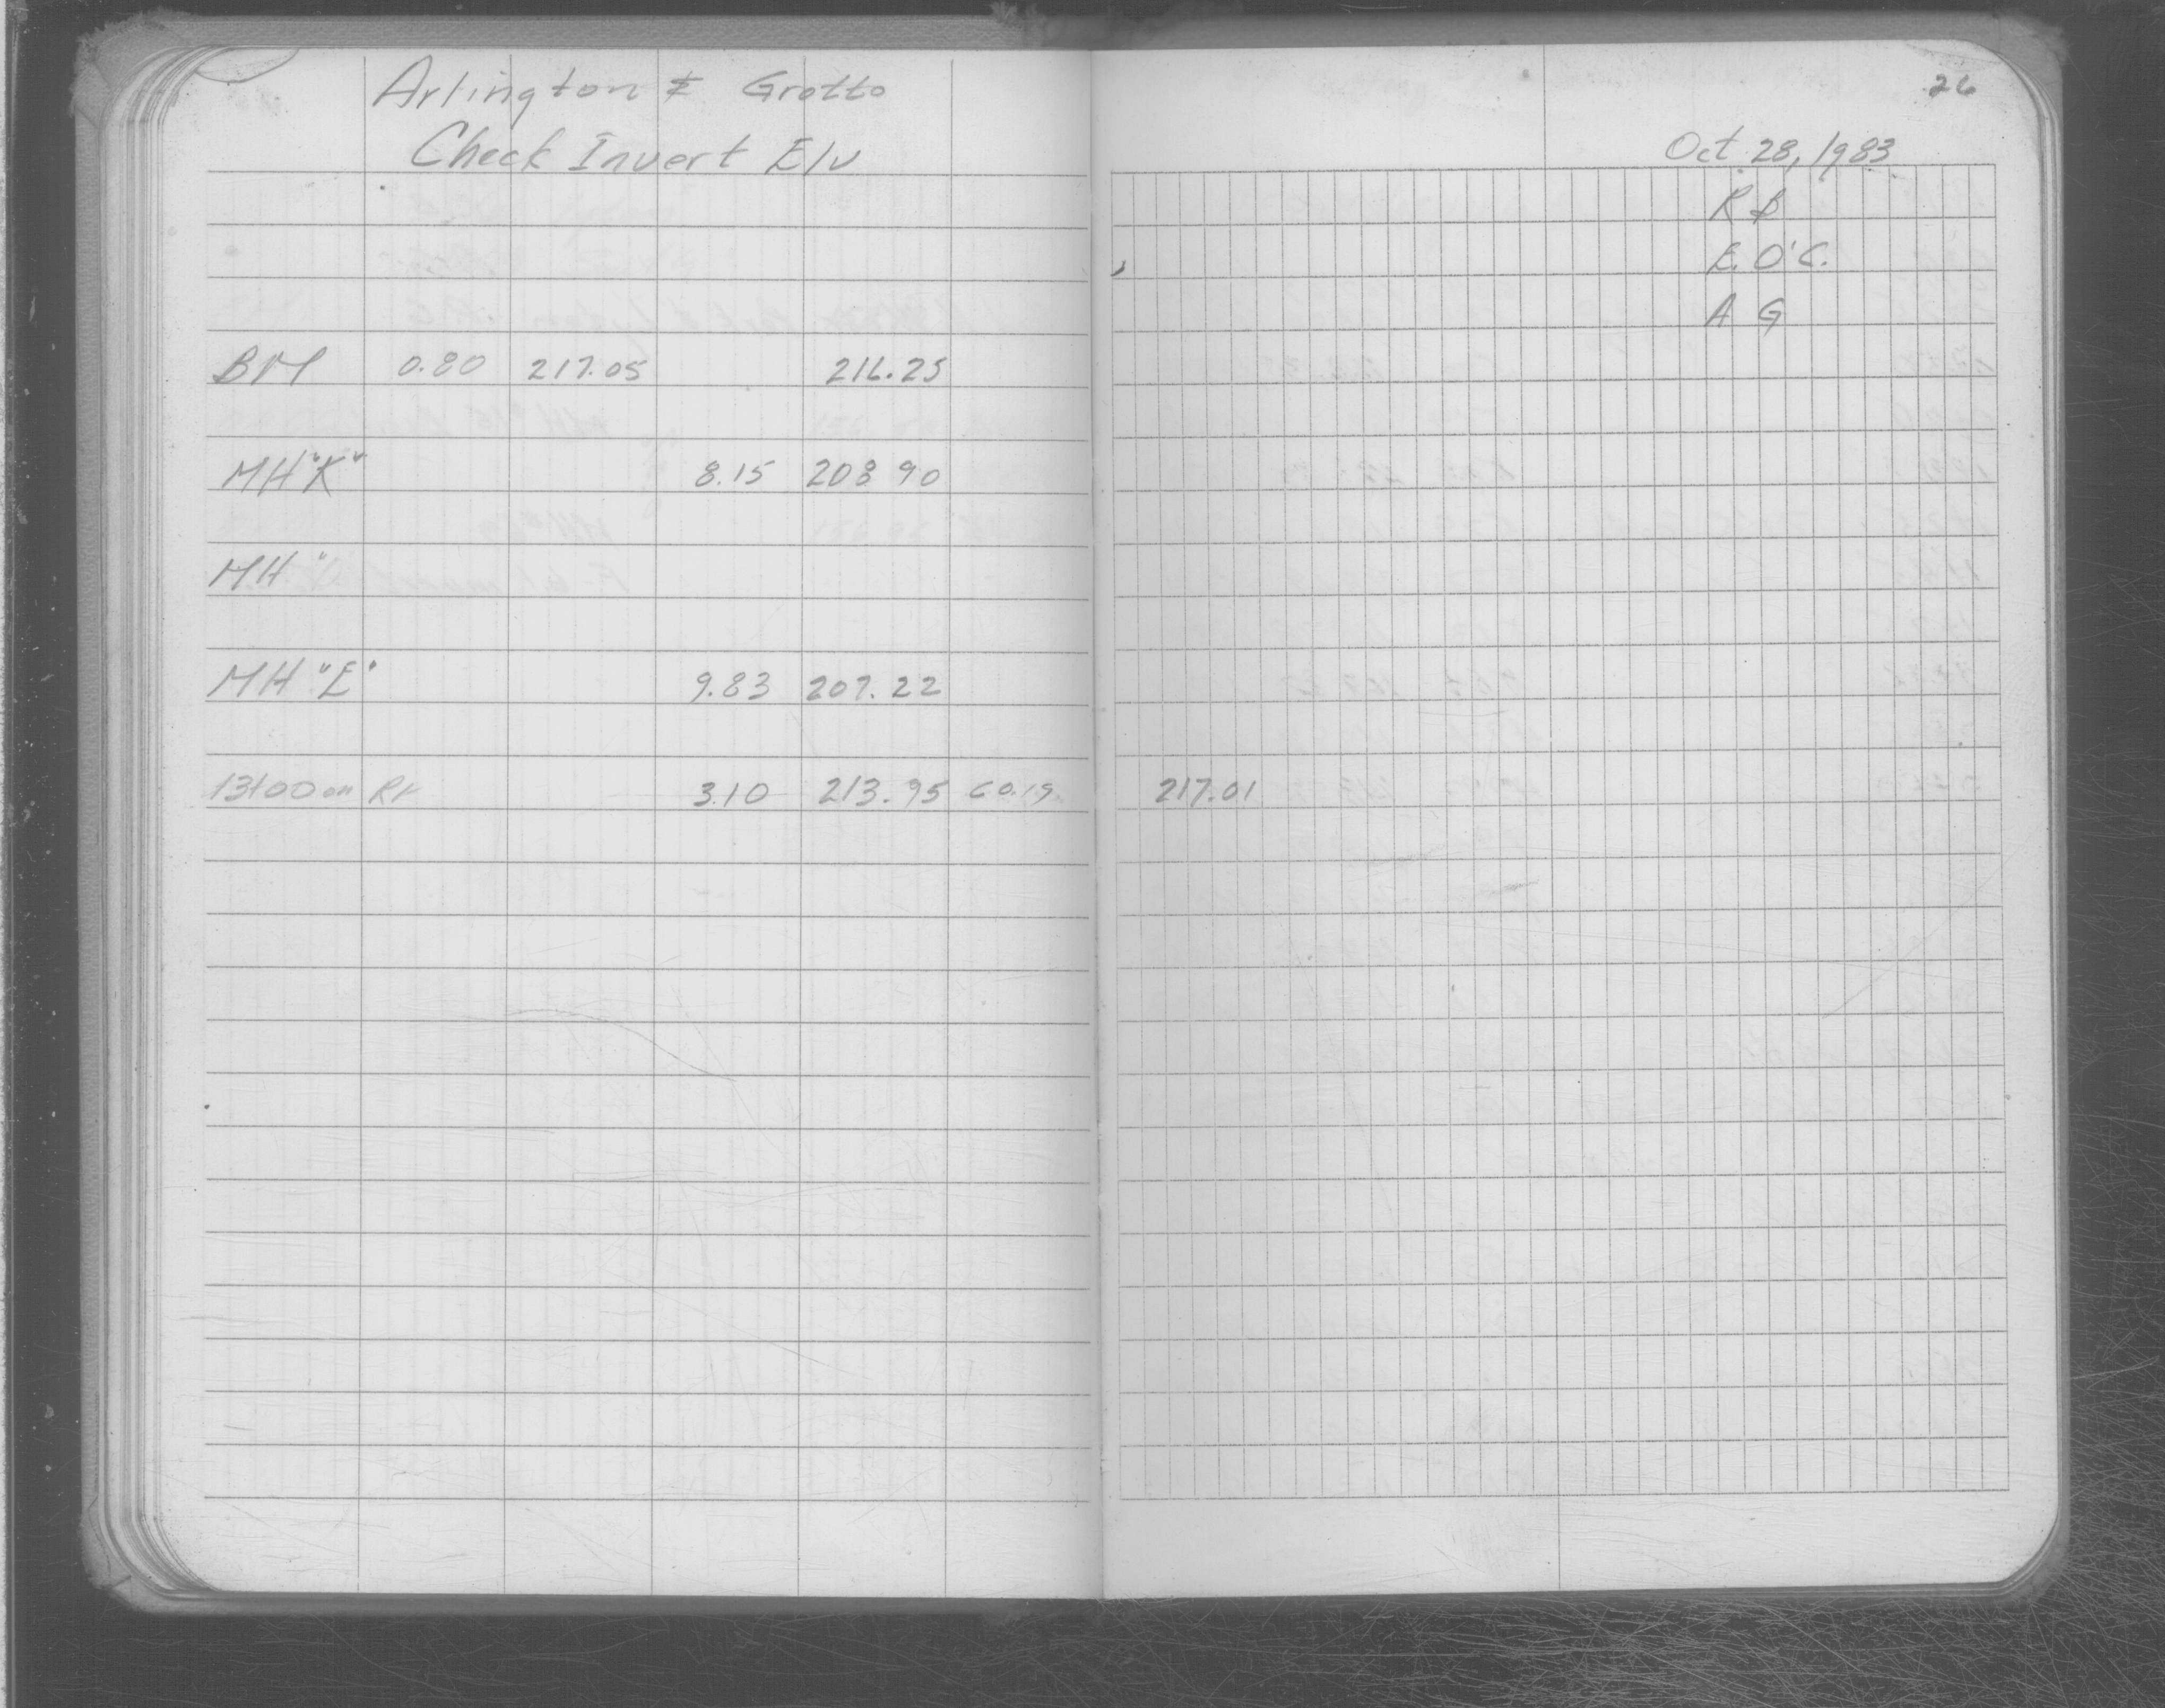 Arlington & Grotto
Check Invert Elv
BM 0.80 217.05 216.25
MH "K" 8.15 208 90
MH "
MH "E" 9.83 207.22
13+00 on Rt 3.10 213.95
26
Oct 28, 1983
R B
E. O'C.
A G
217.01